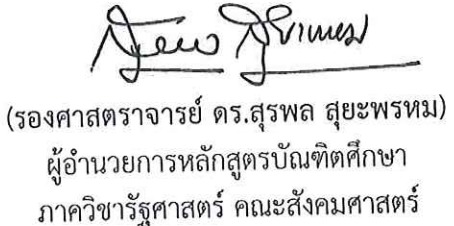 (รองศาสตราจารย์ ดร.สุรพล สุยะพรหม)
ผู้อำนวยการหลักสูตรบัณฑิตศึกษา
ภาควิชารัฐศาสตร์ คณะสังคมศาสตร์